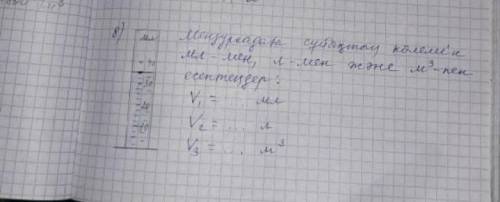 8)
мл
Мензурадағы сұйықтың көлемін
мл-мен, л-мен және м³-пен
есептеңдер:
V₁ = ... мл
V₂ = ... л
V₃ = ... м³